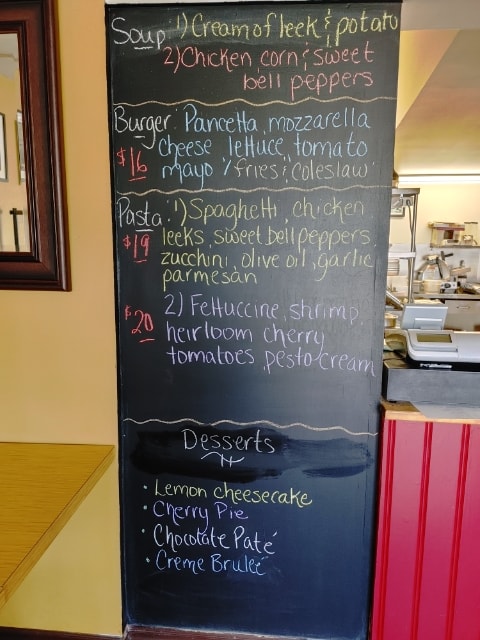 Soup 1) Cream of leek & potato
2) Chicken corn & sweet
bell peppers
Burger: Pancetta, mozzarella
cheese lettuce, tomato
$16 mayo / fries & coleslaw
Pasta: 1) Spaghetti, chicken
$19 leeks, sweet bell peppers,
zucchini, olive oil, garlic
parmesan
$20 2) Fettuccine, shrimp,
heirloom cherry
tomatoes, pesto cream
Desserts
• Lemon cheesecake
• Cherry Pie
• Chocolate Paté
• Creme Bruleé